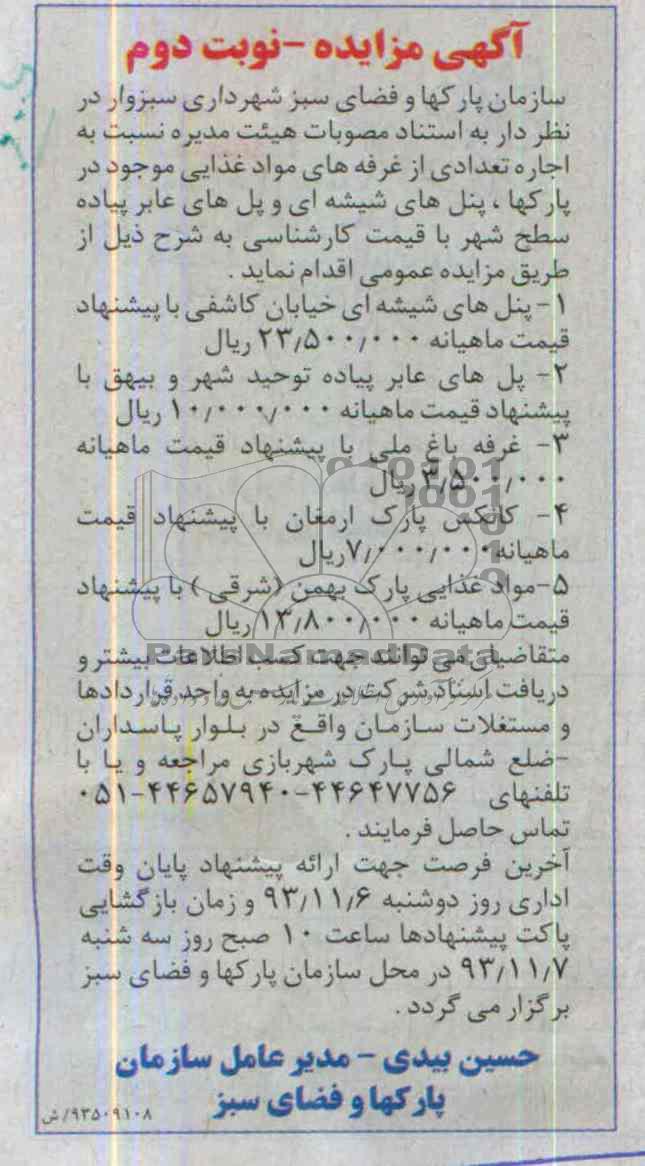 آگهی مزایده -نوبت دوم
سازمان پارکها و فضای سبز شهرداری سبزوار در
نظر دار به استناد مصوبات هیئت مدیره نسبت به
اجاره تعدادی از غرفه های مواد غذایی موجود در
پارکها ، پنل های شیشه ای و پل های عابر پیاده
سطح شهر با قیمت کارشناسی به شرح ذیل از
طریق مزایده عمومی اقدام نماید .
۱- پنل های شیشه ای خیابان کاشفی با پیشنهاد
قیمت ماهیانه ۲۳/۵۰۰/۰۰۰ ریال
۲- پل های عابر پیاده توحید شهر و بیهق با
پیشنهاد قیمت ماهیانه ۱۰/۰۰۰/۰۰۰ ریال
۳- غرفه باغ ملی با پیشنهاد قیمت ماهیانه
۳/۵۰۰/۰۰۰ ریال
۴- کانکس پارک ارمغان با پیشنهاد قیمت
ماهیانه۷/۰۰۰/۰۰۰ریال
۵-مواد غذایی پارک بهمن (شرقی ) با پیشنهاد
قیمت ماهیانه ۱۳/۸۰۰/۰۰۰ ریال
ParsNamadData
متقاضیان می توانند جهت کسب اطلاعات بیشتر و
دریافت اسناد شرکت در مزایده به واحد قراردادها
و مستغلات سازمان واقع در بلوار پاسداران
-ضلع شمالی پارک شهربازی مراجعه و یا با
تلفنهای ۴۴۶۴۷۷۵۶-۴۴۶۵۷۹۴۰-۰۵۱
تماس حاصل فرمایند .
آخرین فرصت جهت ارائه پیشنهاد پایان وقت
اداری روز دوشنبه ۹۳/۱۱/۶ و زمان بازگشایی
پاکت پیشنهادها ساعت ۱۰ صبح روز سه شنبه
۹۳/۱۱/۷ در محل سازمان پارکها و فضای سبز
برگزار می گردد .
حسین بیدی - مدیر عامل سازمان
پارکها و فضای سبز
۹۳۵۰۹۱۰۸/ش